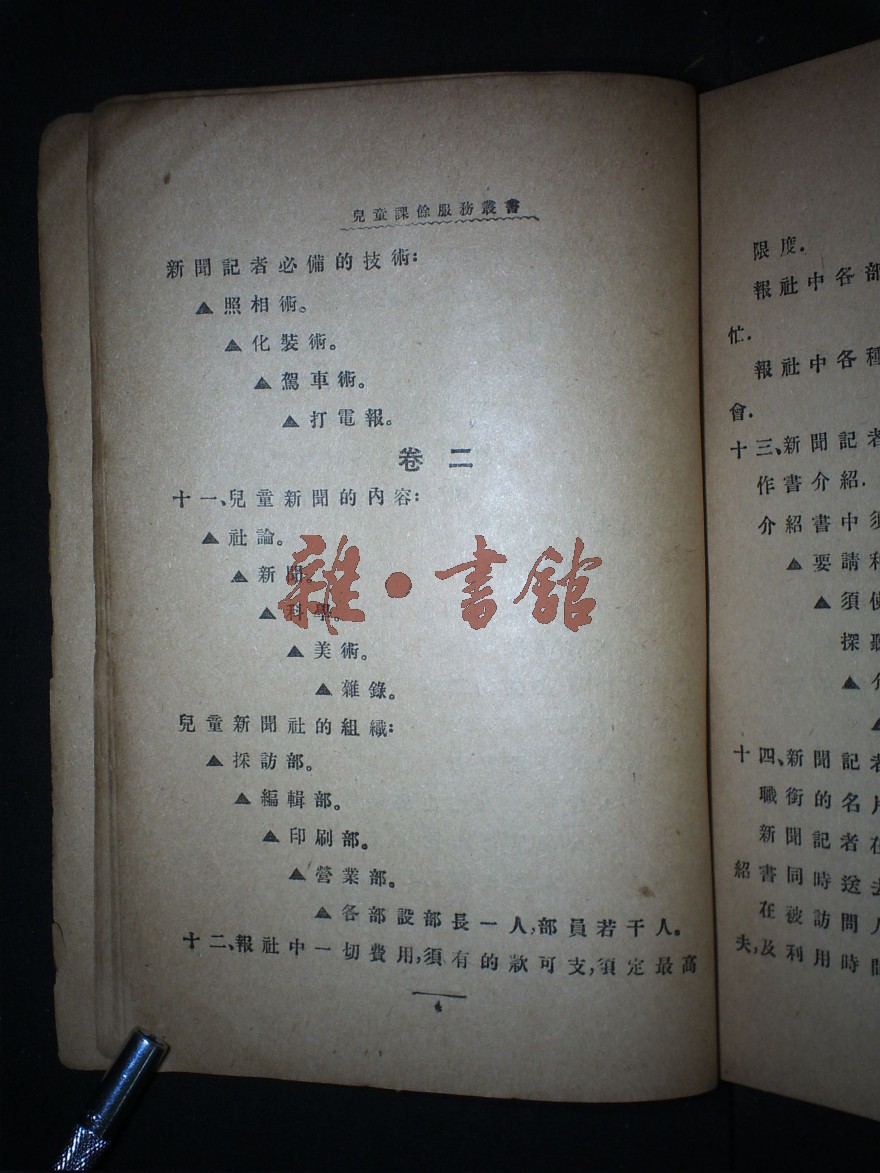 兒童課餘服務叢書
新聞記者必備的技術：
▲照相術。
▲化裝術。
▲駕車術。
▲打電報。
卷二
十一、兒童新聞的內容：
▲社論。
▲新聞。
▲科學。
▲美術。
▲雜錄。
兒童新聞社的組織：
▲採訪部。
▲編輯部。
▲印刷部。
▲營業部。
▲各部設部長一人，部員若干人。
十二、報社中一切費用，須有的款可支，須定最高
雜·書館
限度．
報社中各部
忙．
報社中各種
會．
十三、新聞記者
作書介紹．
介紹書中須
▲要請
▲須使
探
▲介
十四、新聞記者
職銜的名片
新聞記者在
紹書同時送去
在被訪問人
夫，及利用時間